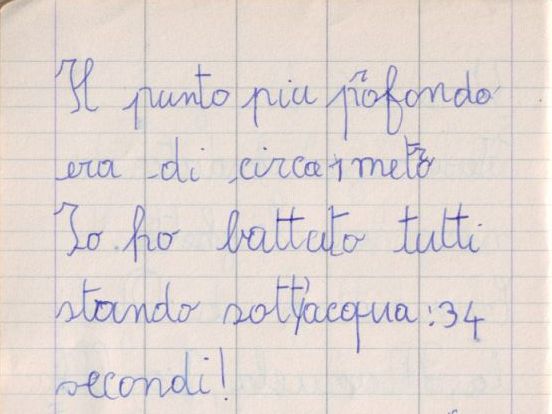 Il punto piu profondo
era di circa 1 metro
Io ho battuto tutti
stando sott'acqua: 34
secondi!